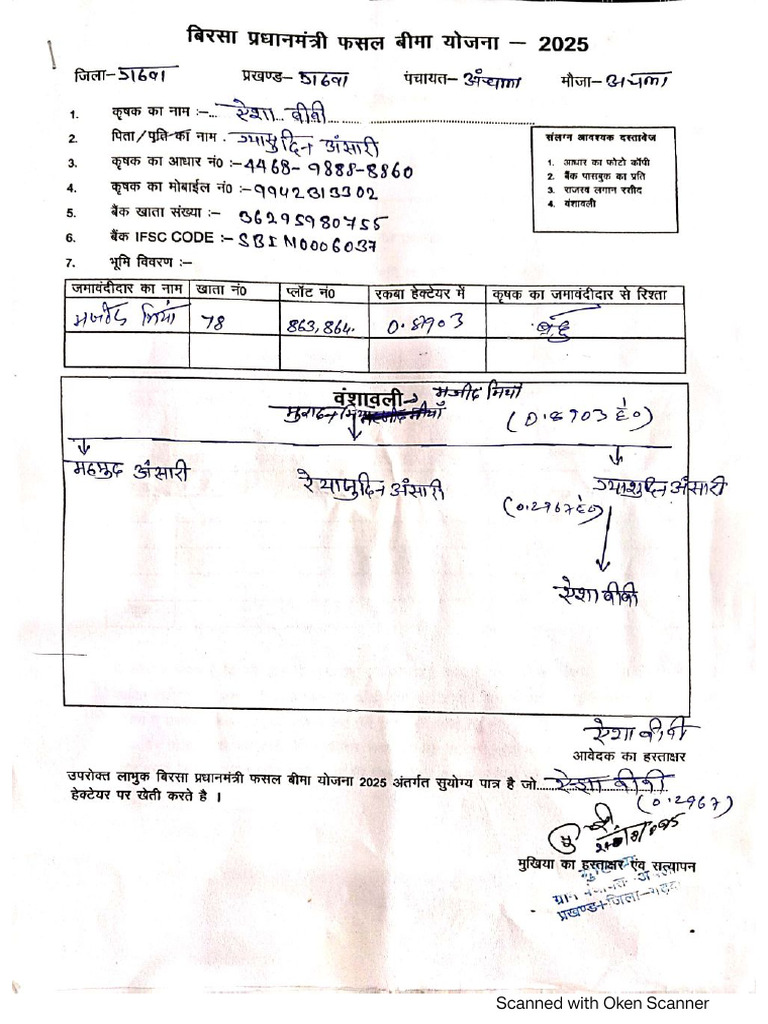 बिरसा प्रधानमंत्री फसल बीमा योजना – 2025
जिला– गढवा प्रखण्ड– गढवा पंचायत– अंचला मौजा– अचला
1. कृषक का नाम :– ऐशा बीबी
2. पिता/पति का नाम . ग्यासुदिन अंसारी
3. कृषक का आधार नं0 :– 4468-9888-8860
4. कृषक का मोबाईल नं0 :– 9942313302
5. बैंक खाता संख्या :– 36295980755
6. बैंक IFSC CODE :– SBIN0006037
7. भूमि विवरण :–
संलग्न आवश्यक दस्तावेज
1. आधार का फोटो कॉपी
2. बैंक पासबुक का प्रति
3. राजस्व लगान रसीद
4. वंशावली
जमावंदीदार का नाम खाता नं0 प्लॉट नं0 रकबा हेक्टेयर में कृषक का जमावंदीदार से रिश्ता
मजीद मियां 78 863, 864. 0.8903 बहु
वंशावली मजीद मियाँ
(0.8903 हे०)
महमुद अंसारी रेयाजुदिन अंसारी ग्यासुदिन अंसारी
(0.2967 हे०)
ऐशा बीबी
ऐशा बीबी
आवेदक का हस्ताक्षर
उपरोक्त लाभुक बिरसा प्रधानमंत्री फसल बीमा योजना 2025 अंतर्गत सुयोग्य पात्र है जो ऐशा बीबी
हेक्टेयर पर खेती करते है । (0.2967)
मुखिया का हस्ताक्षर एंव सत्यापन
ग्राम पंचायत-
प्रखण्ड+जिला-गढ़वा
Scanned with Oken Scanner